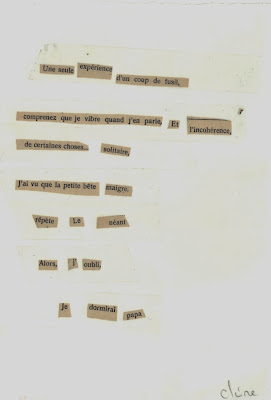 Une seule expérience d'un coup de fusil,
comprenez que je vibre quand j'en parle, Et l'incohérence,
de certaines choses.. solitaire,
J'ai vu que la petite bête maigre.
répète Le néant
Alors, l' oubli,
Je dormirai papa